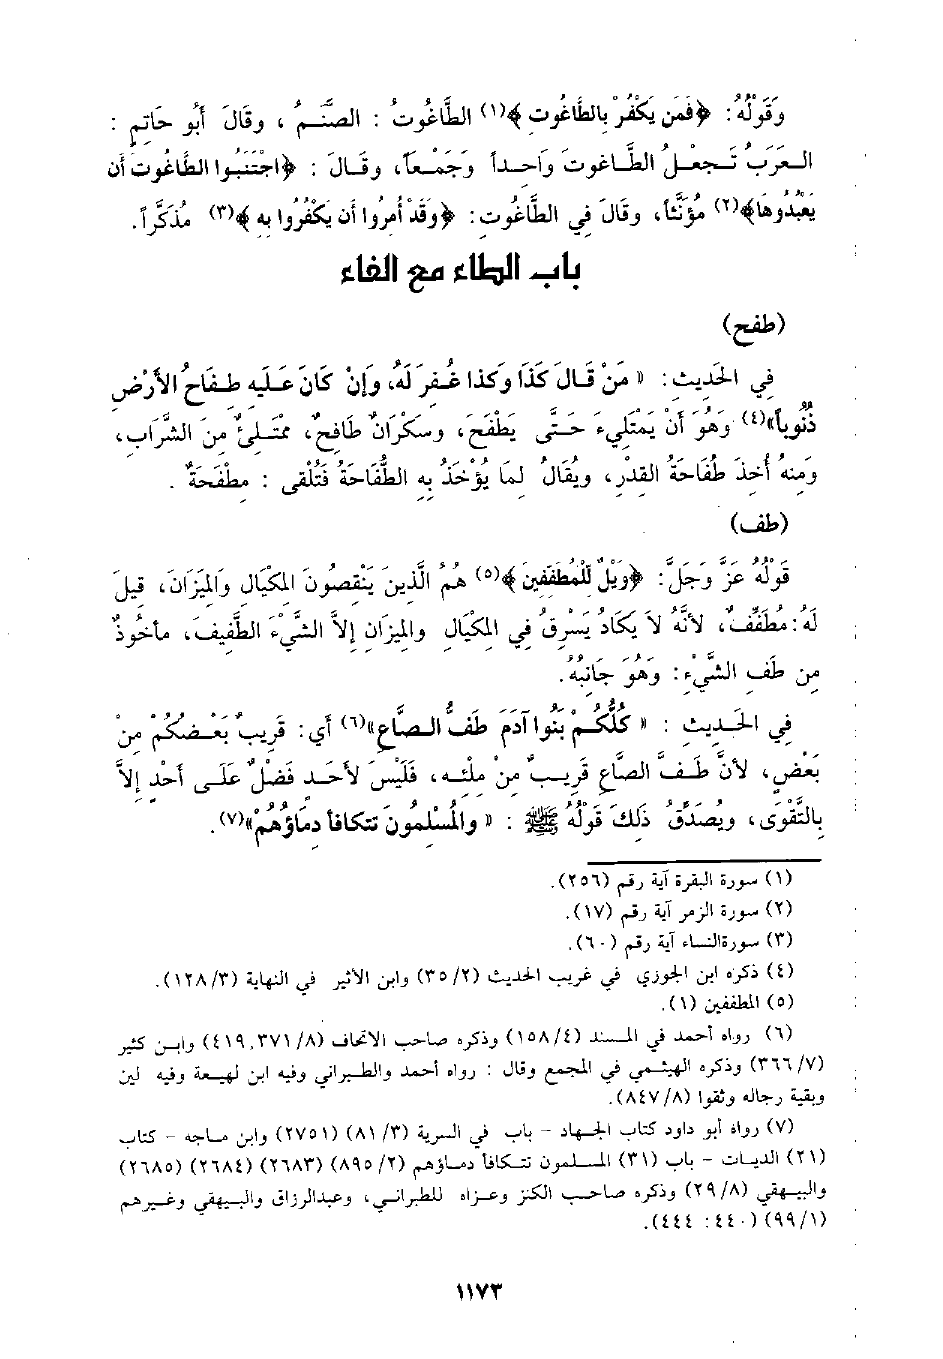 وَقَوْلُهُ: ﴿فَمَن يَكْفُرْ بِالطَّاغُوتِ﴾(١) الطَّاغُوتُ : الصَّنَمُ ، وقَالَ أَبُو حَاتِمٍ :
العَرَبُ تَجعَلُ الطَّاغوتَ وَاحداً وَجَمْعاً، وقَالَ : ﴿اجْتَنَبُوا الطَّاغُوتَ أَن
يَعْبُدُوهَا﴾(٢) مُؤَنَّثاً، وقَالَ فِي الطَّاغُوتِ: ﴿وَقَدْ أُمِرُوا أَن يَكْفُرُوا بِهِ﴾(٣) مُذَكَّراً.
باب الطاء مع الفاء
(طفح)
فِي الحَدِيثِ: « مَنْ قَالَ كَذَا وَكَذا غُفِرَ لَهُ، وَإِنْ كَانَ عَلَيهِ طِفَاحُ الأَرْضِ
ذُنُوباً»(٤) وَهُوَ أَنْ يَمْتَلِيءَ حَتَّى يَطْفَحَ، وسَكْرَانٌ طَافِحٌ، مُمْتَلِئٌ مِنَ الشَّرَابِ،
وَمِنهُ أُخِذَ طُفَاحَةُ القِدْرِ، ويُقَالُ لِمَا يُؤْخَذُ بِهِ الطُّفَاحَةُ فَتُلْقى : مِطْفَحَةٌ .
(طف)
قَوْلُهُ عَزَّ وَجَلَّ: ﴿وَيْلٌ لِّلْمُطَفِّفِينَ﴾(٥) هُمُ الَّذِينَ يَنْقِصُونَ المِكْيَالَ وَالمِيْزَانَ، قِيلَ
لَهُ: مُطَفِّفٌ، لأَنَّهُ لاَ يَكَادُ يَسْرِقُ فِي المِكْيَالِ والمِيزَانِ إلاَّ الشَّيْءَ الطَّفِيفَ، مأخُوذٌ
مِن طَفِ الشَّيْءِ: وَهُوَ جَانِبُهُ.
فِي الحَدِيثِ : « كُلُّكُمْ بَنُوا آدَمَ طَفُّ الصَّاعِ»(٦) أَي: قَرِيبٌ بَعْضُكُمْ مِن
بَعْضٍ، لأَنَّ طَفَّ الصَّاعِ قَرِيبٌ مِنْ مِلْئِهِ، فَلَيْسَ لأَحَدٍ فَضْلٌ عَلَى أَحَدٍ إِلاَّ
بِالتَّقْوَى، ويُصَدِّقُ ذَلِكَ قَوْلُهُ ﷺ : « والمُسْلِمُونَ تَتَكافَأُ دِمَاؤُهُمْ»(٧).
(١) سورة البقرة آية رقم (٢٥٦).
(٢) سورة الزمر آية رقم (١٧).
(٣) سورةالنساء آية رقم (٦٠).
(٤) ذكره ابن الجوزي في غريب الحديث (٣٥/٢) وابن الأثير في النهاية (١٢٨/٣).
(٥) المطففين (١).
(٦) رواه أحمد في المسند (١٥٨/٤) وذكره صاحب الاتحاف (٣٧١/٨, ٤١٩) وابن كثير
(٣٦٦/٧) وذكره الهيثمي في المجمع وقال : رواه أحمد والطبراني وفيه ابن لهيعة وفيه لين
وبقية رجاله وثقوا (٨٤٧/٨).
(٧) رواه أبو داود كتاب الجهاد - باب في السرية (٨١/٣) (٢٧٥١) وابن ماجه - كتاب
(٢١) الديات - باب (٣١) المسلمون تتكافأ دماؤهم (٨٩٥/٢) (٢٦٨٣) (٢٦٨٤) (٢٦٨٥)
والبيهقي (٢٩/٨) وذكره صاحب الكنز وعزاه للطبراني، وعبدالرزاق والبيهقي وغيرهم
(٩٩/١) (٤٤٠: ٤٤٤).
١١٧٣